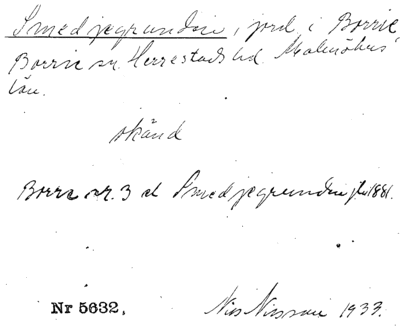 Smedjegrunden, jord i Borrie,
Borrie sn. Herrestads hd. Malmöhus
län.
okänd
Borrie nr. 3 el Smedjegrunden jb 1881.
Nr 5632. Nils Nilsson 1933.